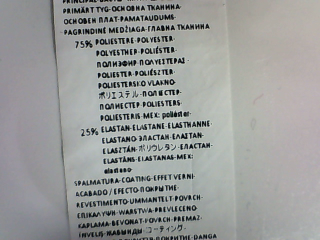 PRIMÄRTYG·ОСНОВНА ТКАНИНА
ОСНОВЕН ПЛАТ·PAMATAUDUMS·
PAGRINDINĖ MEDŽIAGA·ГЛАВНА ТКАНИНА
75% POLIESTERE·POLYESTER·
POLYETHER·POLIÉSTER·
ПОЛИЭФИР·ΠΟΛΥΕΣΤΕΡΑΣ·
POLIESTER·POLIÉSZTER·
POLIESTERSKO VLAKNO·
ポリエステル·ПОЛІЕСТЕР·
ПОЛИЕСТЕР·POLIESTERS·
POLIESTERIS·MEX: poliéster·
25% ELASTAN·ELASTANE·ELASTHANNE·
ELASTANO·ЭЛАСТАН·ΕΛΑΣΤΑΝ·
ELASZTÁN·ポリウレタン·ЕЛАСТАН·
ELASTĀNS·ELASTANAS·MEX:
elastano·
SPALMATURA·COATING·EFFET VERNI·
ACABADO / EFECTO·ПОКРЫТИЕ·
REVESTIMENTO·UMMANTELET·POVRCH·
ΕΠΙΚΑΛΥΨΗ·WARSTWA·PREVLEČENO·
KAPLAMA·BEVONAT·POVRCH·PREMAZ·
コーティング·